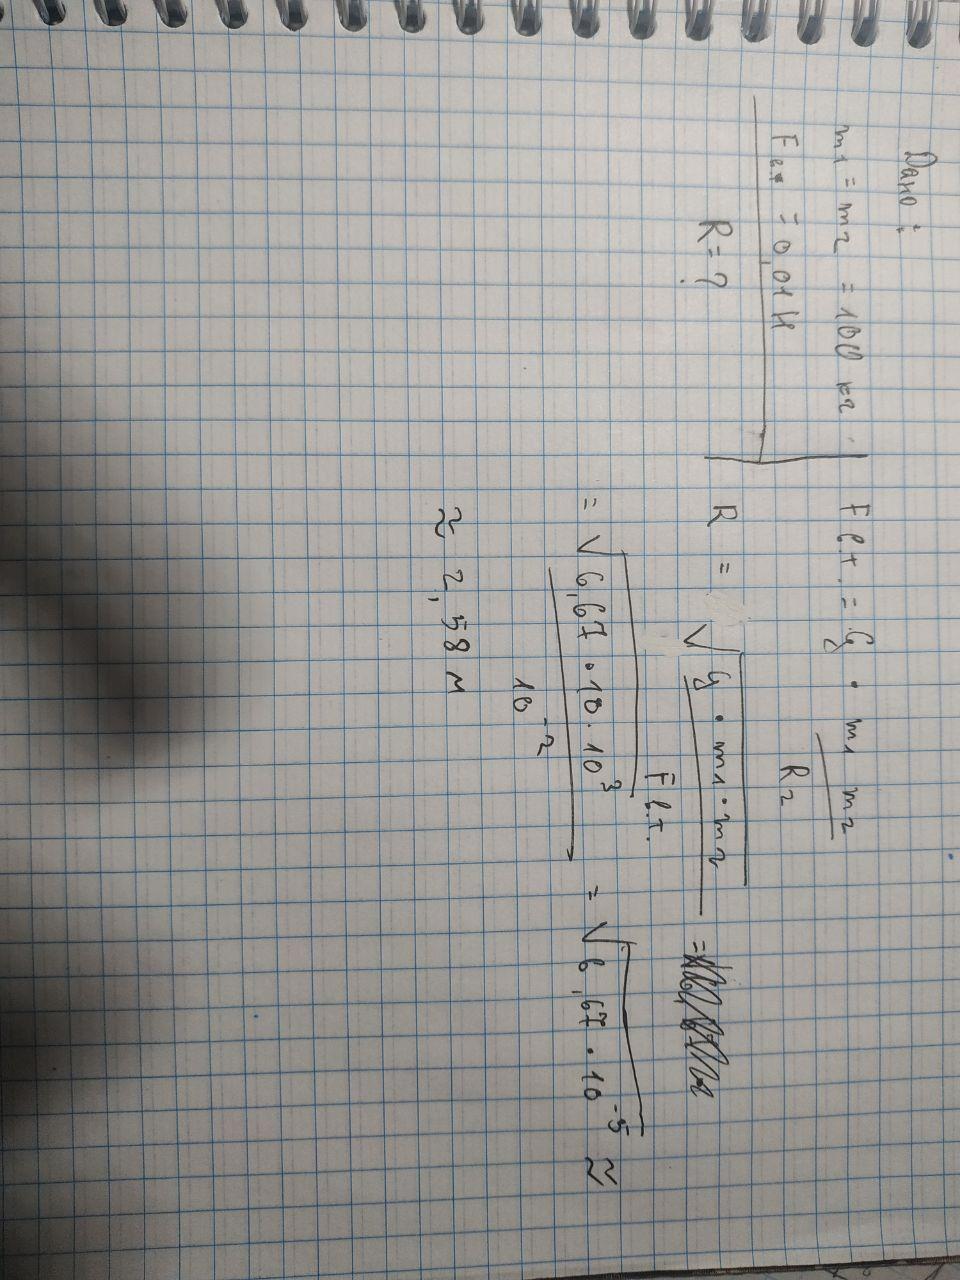 Дано:
m1 = m2 = 100 кг
F в.т = 0,01 Н
R = ?
F в.т. = G · m1 m2 / R2
R = √ G · m1 · m2 / F в.т. =
= √ 6,67 · 10 · 10³ / 10⁻² = √ 6,67 · 10⁻⁵ ≈
≈ 2,58 м